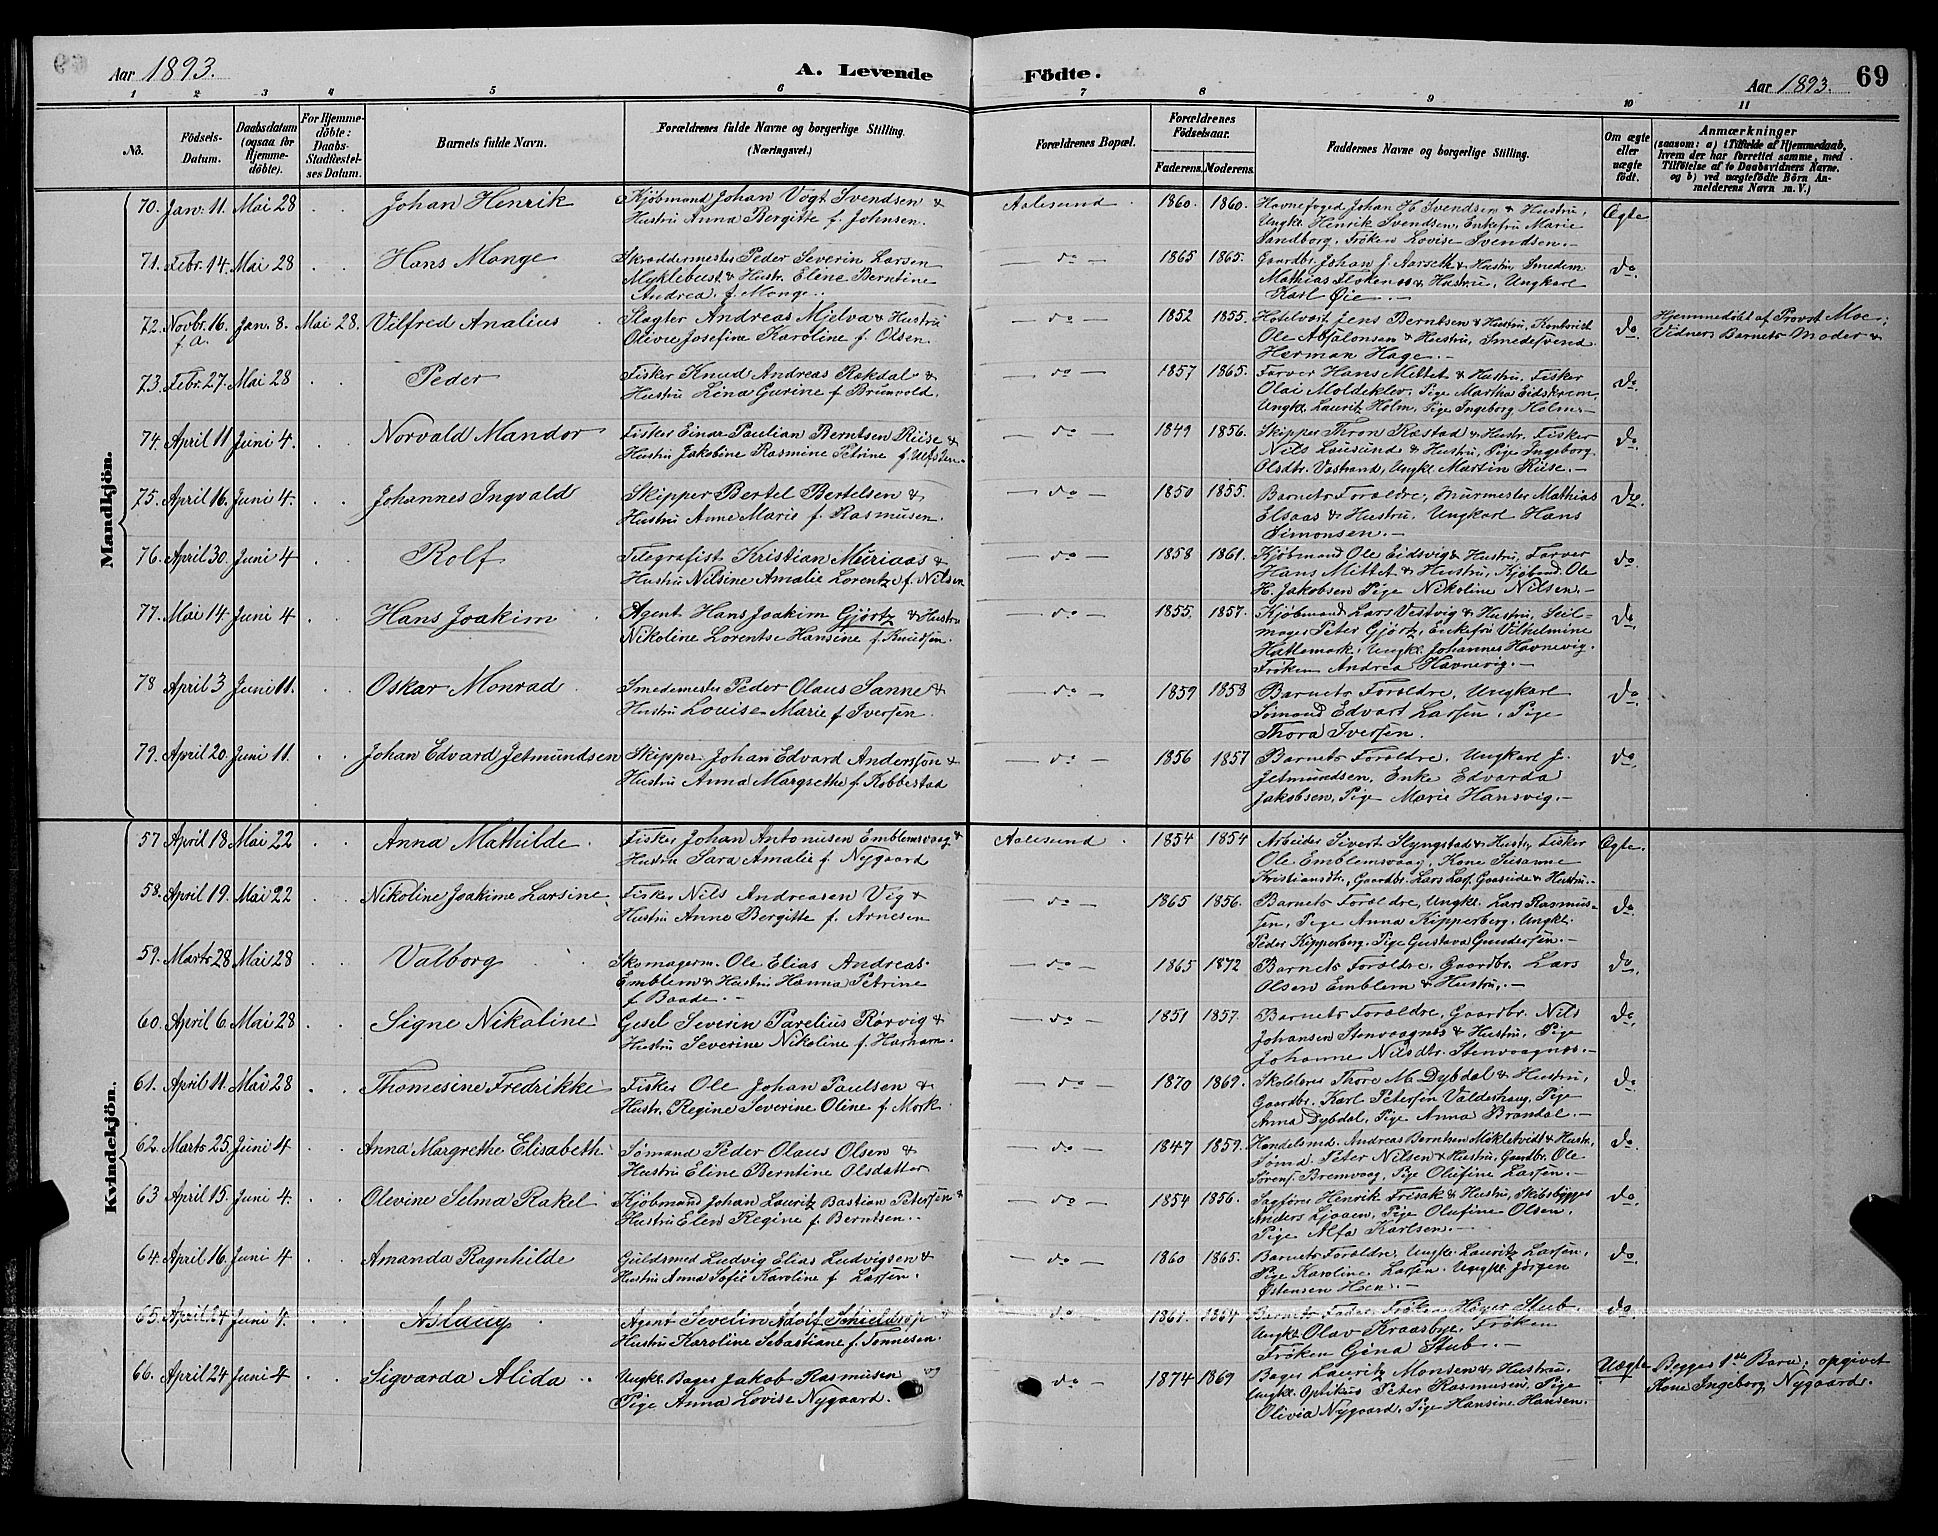 69
Aar 1893.
A. Levende
Födte.
Aar 1893.
1 2 3 4 5 6 7 8 8 9 10 11
No.
Födsels-Datum.
Daabsdatum (ogsaa for Hjemme-döbte).
For Hjemme-döbte: Daabs-Stadfæstel-ses Datum.
Barnets fulde Navn.
Forældrenes fulde Navne og borgerlige Stilling. (Næringsvei.)
Forældrenes Bopæl.
Forældrenes Födselsaar.
Faderens. Moderens.
Faddernes Navne og borgerlige Stilling.
Om ægte eller uægte födt.
Anmærkninger
(saasom: a) i Tilfælde af Hjemmedaab,
hvem der har forrettet samme, med
Tilföielse af to Daabsvidners Navne.
og b) ved uægtefödte Börn An-
melderens Navn m. V.)
Mandkjön.
70. Jan: 11. Mai 28 Johan Henrik Kjöbmand Johan Vogt Svendsen & Aalesund 1860. 1860. Havnefoged Johan H. Svendsen & Hustru, Ægte
Hustru Anna Bergitte f. Johnsen. Ungkl. Henrik Svendsen, Enkefru Marie
Sandborg, Fröken Lovise Svendsen.
71. Febr. 14. Mai 28 Hans Monge Skræddermester Peder Severin Larsen do 1865 1865. Gaardbr. Johan J. Aarseth & Hustru, Smedem. do
Myklebust & Hustr. Eline Berntine Mathias & Hustru, Ungkarl
Andrea f. Monge. Karl Øie.
72. Novbr. 16. f.a. Jan. 8. Mai 28. Vilfred Analius Slagter Andreas Mjelva & Hustru do 1852 1855. Hotelvært Jens Berntsen & Hustru, do. Hjemmedöbt af Provst Moe;
Olivie Josefine Karoline f. Olsen. Ole Absalonsen & Hustru, Smedesvend Vidner Barnets Moder &
Herman Hage.
73. Febr. 27. Mai 28 Peder Fisker Knud Andreas Rökdal & do 1857 1865. Farver Hans Mittet & Hustru, Fisker do.
Hustru Lina Gurine f. Brunvold. Olai Moldeklev, Pige Martha Eidskrem
Ungkl. Lauritz Holm, Pige Ingeborg Holm.
74. April 11 Juni 4. Norvald Mandor Fisker Einar Paulian Berntsen Riise & do 1849 1856. Skipper Thron Ræstad & Hustr. Fisker do
Hustru Jakobine Rasmine Petrine f. Ulfsten. Nils Lousund & Hustru, Pige Ingeborg
Olsdtr. Vestrand, Ungkl. Martin Riise.
75. April 16. Juni 4. Johannes Ingvald Skipper Bertel Bertelsen & do 1850 1855. Barnets Forældre, Murmester Mathias do.
Hustru Anne Marie f. Rasmusen. Elsaas & Hustru, Ungkarl Hans
Simonsen.
76. April 30. Juni 4 Rolf Telegrafist Kristian Muriaas & do 1858 1861. Kjöbmand Ole Eidsvig & Hustru, Farver do.
Hustru Nilsine Amalie Lorentze f. Nilsen Hans Mittet & Hustru, Kjöbmd. Ole
H. Jakobsen Pige Nikoline Nilsen.
77. Mai 14. Juni 4 Hans Joakim Agent Hans Joakim Gjörtz & Hustru do 1855. 1857. Kjöbmand Lars Vestvig & Hustru, Seil- do.
Nikoline Lorentse Hansine f. Knudsen. mager Peter Gjörtz, Enkefru Vilhelmine
Hattemark, Ungkl. Johannes Havnevig.
Fröken Andrea Havnevig.
78 April 3 Juni 11. Oskar Monrad Smedemester Peder Olaus Sanne & do 1859 1858 Barnets Forældre, Ungkarl do.
Hustru Louise Marie f. Iversen. Sömand Edvart Larsen, Pige
Thora Iversen.
79. April 20. Juni 11. Johan Edvard Jetmundsen Skipper Johan Edvard Anderssen & do 1856 1857 Barnets Forældre, Ungkarl J. do.
Hustru Anna Margrethe f. Kobbestad Jetmundsen, Enke Edvarda
Jakobsen, Pige Marie Hansvig.
Kvindekjön.
57 April 18 Mai 22 Anna Mathilde Fisker Johan Antonusen Emblemsvaag & Aalesund 1854 1854 Arbeider Sivert Slyngstad & Hustr, Fisker Ægte.
Hustru Sara Amalie f. Nygaard Ole Emblemsvaag, Kone Susanne
Kristiansdtr., Gaardbr. Lars Las. Gaaseide & Hustru.
58. April 19. Mai 22 Nikoline Joakime Larsine Fisker Nils Andreasen Vig & do 1865 1856. Barnets Forældre, Ungkl. Lars Rasmus- do
Hustru Anne Bergitte f. Arnesen sen, Pige Anna Kipperberg, Ungkl.
Peder Kipperberg. Pige Gustava Gundersen.
59. Marts 28 Mai 28 Valborg Skomagerm. Ole Elias Andreas do 1865 1872 Barnets Forældre, Gaardbr. Lars do.
Emblem & Hustru Hanna Petrine Olsen Emblem & Hustru,
f. Baade.
60. April 6. Mai 28 Signe Nikoline Gesel Severin Parelius Rörvig & do 1851 1857. Barnets Forældre, Gaardbr. Nils do.
Hustru Severine Nikoline f. Harham. Johansen Stenvaagnes & Hustru, Pige
Johanne Nilsdtr. Stenvaagnes.
61. April 11. Mai 28 Thomesine Fredrikke Fisker Ole Johan Paulsen & do 1870 1869. Skolelærer Thore M. Dybdal & Hustru, do
Hustr. Regine Severine Oline f. Mork Gaardbr. Karl Petersen Valderhaug, Pige
Anna Dybdal, Pige Anna Brandal.
62. Marts 25. Juni 4 Anna Margrethe Elisabeth Sömand Peder Olaus Olsen & do 1847 1859. Handelsmd. Andreas Berntsen Mökletvidt & Hustr, do.
Hustru Eline Berntine Olsdatter Sömd. Peter Nilsen & Hustru, Gaardbr. Ole
Sörens. Bremvaag, Pige Olufine Larsen.
63 April 15. Juni 4. Olevine Selma Rakel Kjöbmand Johan Lauritz Bastian Petersen & do 1854 1856. Sagförer Henrik Frisak & Hustru, Skibsbygger do.
Hustru Elen Regine f. Berntsen. Anders Ljoaen, Pige Olufine Olsen,
Pige Alfa Karlsen.
64. April 16. Juni 4 Amanda Ragnhilde Guldsmed Ludvig Elias Ludvigsen & do 1860 1865. Barnets Forældre, Ungkl. Lauritz Larsen, do.
Hustru Anna Sofie Karoline f. Larsen. Pige Karoline Larsen. Ungkl. Jörgen
Östensen Hoen.
65. April 24 Juni 4. Aslaug Agent Severin Adolf Schieldrop & do 1861. 1864 Barnets Fader, Fröken Höyer Stub. do.
Hustru Karoline Sebastiane f. Tönnesen. Ungkl. Olav Kraasbye, Fröken
Fröken Gina Stub.
66. April 24 Juni 4 Sigvarda Alida Ungkl. Bager Jakob Rasmusen og do 1874 1869 Bager Lauritz Monsen & Hustru, Uægte Begges 1ste Barn; opgivet
Pige Anna Lovise Nygaard. Ungkl. Optikus Peter Rasmusen, Pige Kone Ingeborg Nygaard.
Olivia Nygaard, Pige Hansine Hansen.